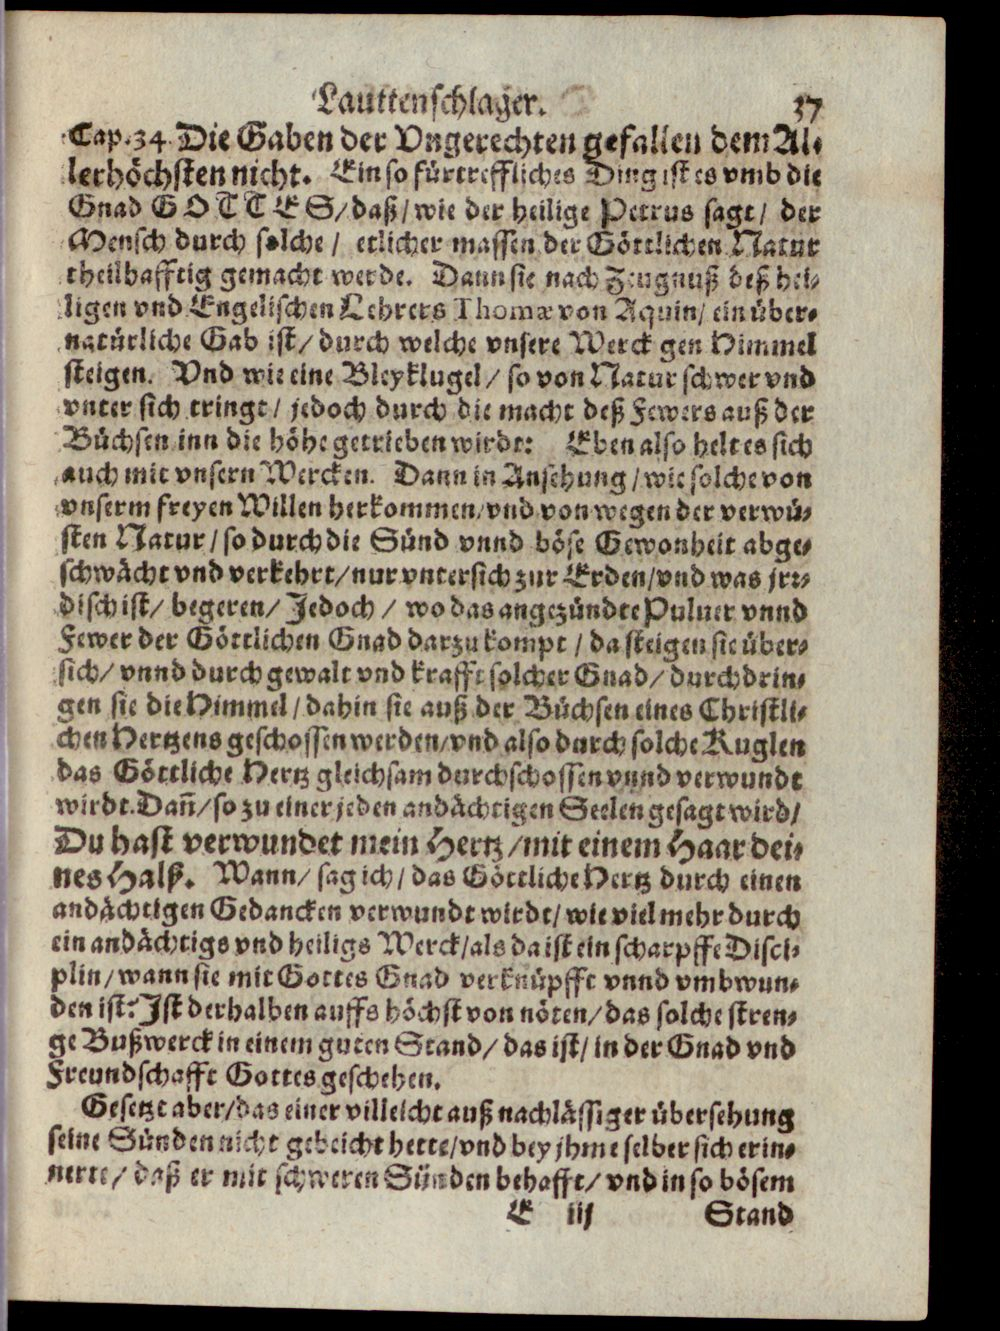 Lauttenschlager. 37
Cap.34 Die Gaben der Vngerechten gefallen dem Al-
lerhöchsten nicht. Ein so fürtreffliches Ding ist es vmb die
Gnad GOTTES/ daß/ wie der heilige Petrus sagt/ der
Mensch durch solche/ etlicher massen der Göttlichen Natur
theilhafftig gemacht werde. Dann sie nach Zeugnuß deß hei-
ligen vnd Engelischen Lehrers Thomæ von Aquin/ ein über-
natürliche Gab ist/ durch welche vnsere Werck gen Himmel
steigen. Vnd wie eine Bleyklugel/ so von Natur schwer vnd
vnter sich tringt/ jedoch durch die macht deß Fewers auß der
Büchsen inn die höhe getrieben wirdt: Eben also helt es sich
auch mit vnsern Wercken. Dann in Ansehung/ wie solche von
vnserm freyen Willen herkommen/ vnd von wegen der verwü-
sten Natur/ so durch die Sünd vnnd böse Gewonheit abge-
schwächt vnd verkehrt/ nur vntersich zur Erden/ vnd was jrr-
disch ist/ begeren/ Jedoch/ wo das angezündte Puluer vnnd
Fewer der Göttlichen Gnad darzu kompt/ da steigen sie über-
sich/ vnnd durch gewalt vnd krafft solcher Gnad/ durchdrin-
gen sie die Himmel/ dahin sie auß der Büchsen eines Christli-
chen Hertzens geschossen werden/ vnd also durch solche Kuglen
das Göttliche Hertz gleichsam durchschossen vnnd verwundt
wirdt. Dañ/ so zu einer jeden andächtigen Seelen gesagt wird/
Du hast verwundet mein Hertz/ mit einem Haar dei-
nes Halß. Wann/ sag ich/ das Göttliche Hertz durch einen
andächtigen Gedancken verwundt wirdt/ wie viel mehr durch
ein andächtigs vnd heiligs Werck/ als da ist ein scharpffe Disci-
plin/ wann sie mit Gottes Gnad verknüpfft vnnd vmbwun-
den ist? Ist derhalben auffs höchst von nöten/ das solche stren-
ge Bußwerck in einem guten Stand/ das ist/ in der Gnad vnd
Freundschafft Gottes geschehen.
Gesetzt aber/ das einer villeicht auß nachlässiger übersehung
seine Sünden nicht gebeicht hette/ vnd bey jhme selber sich erin-
nerte/ daß er mit schweren Sünden behafft/ vnd in so bösem
E iij Stand